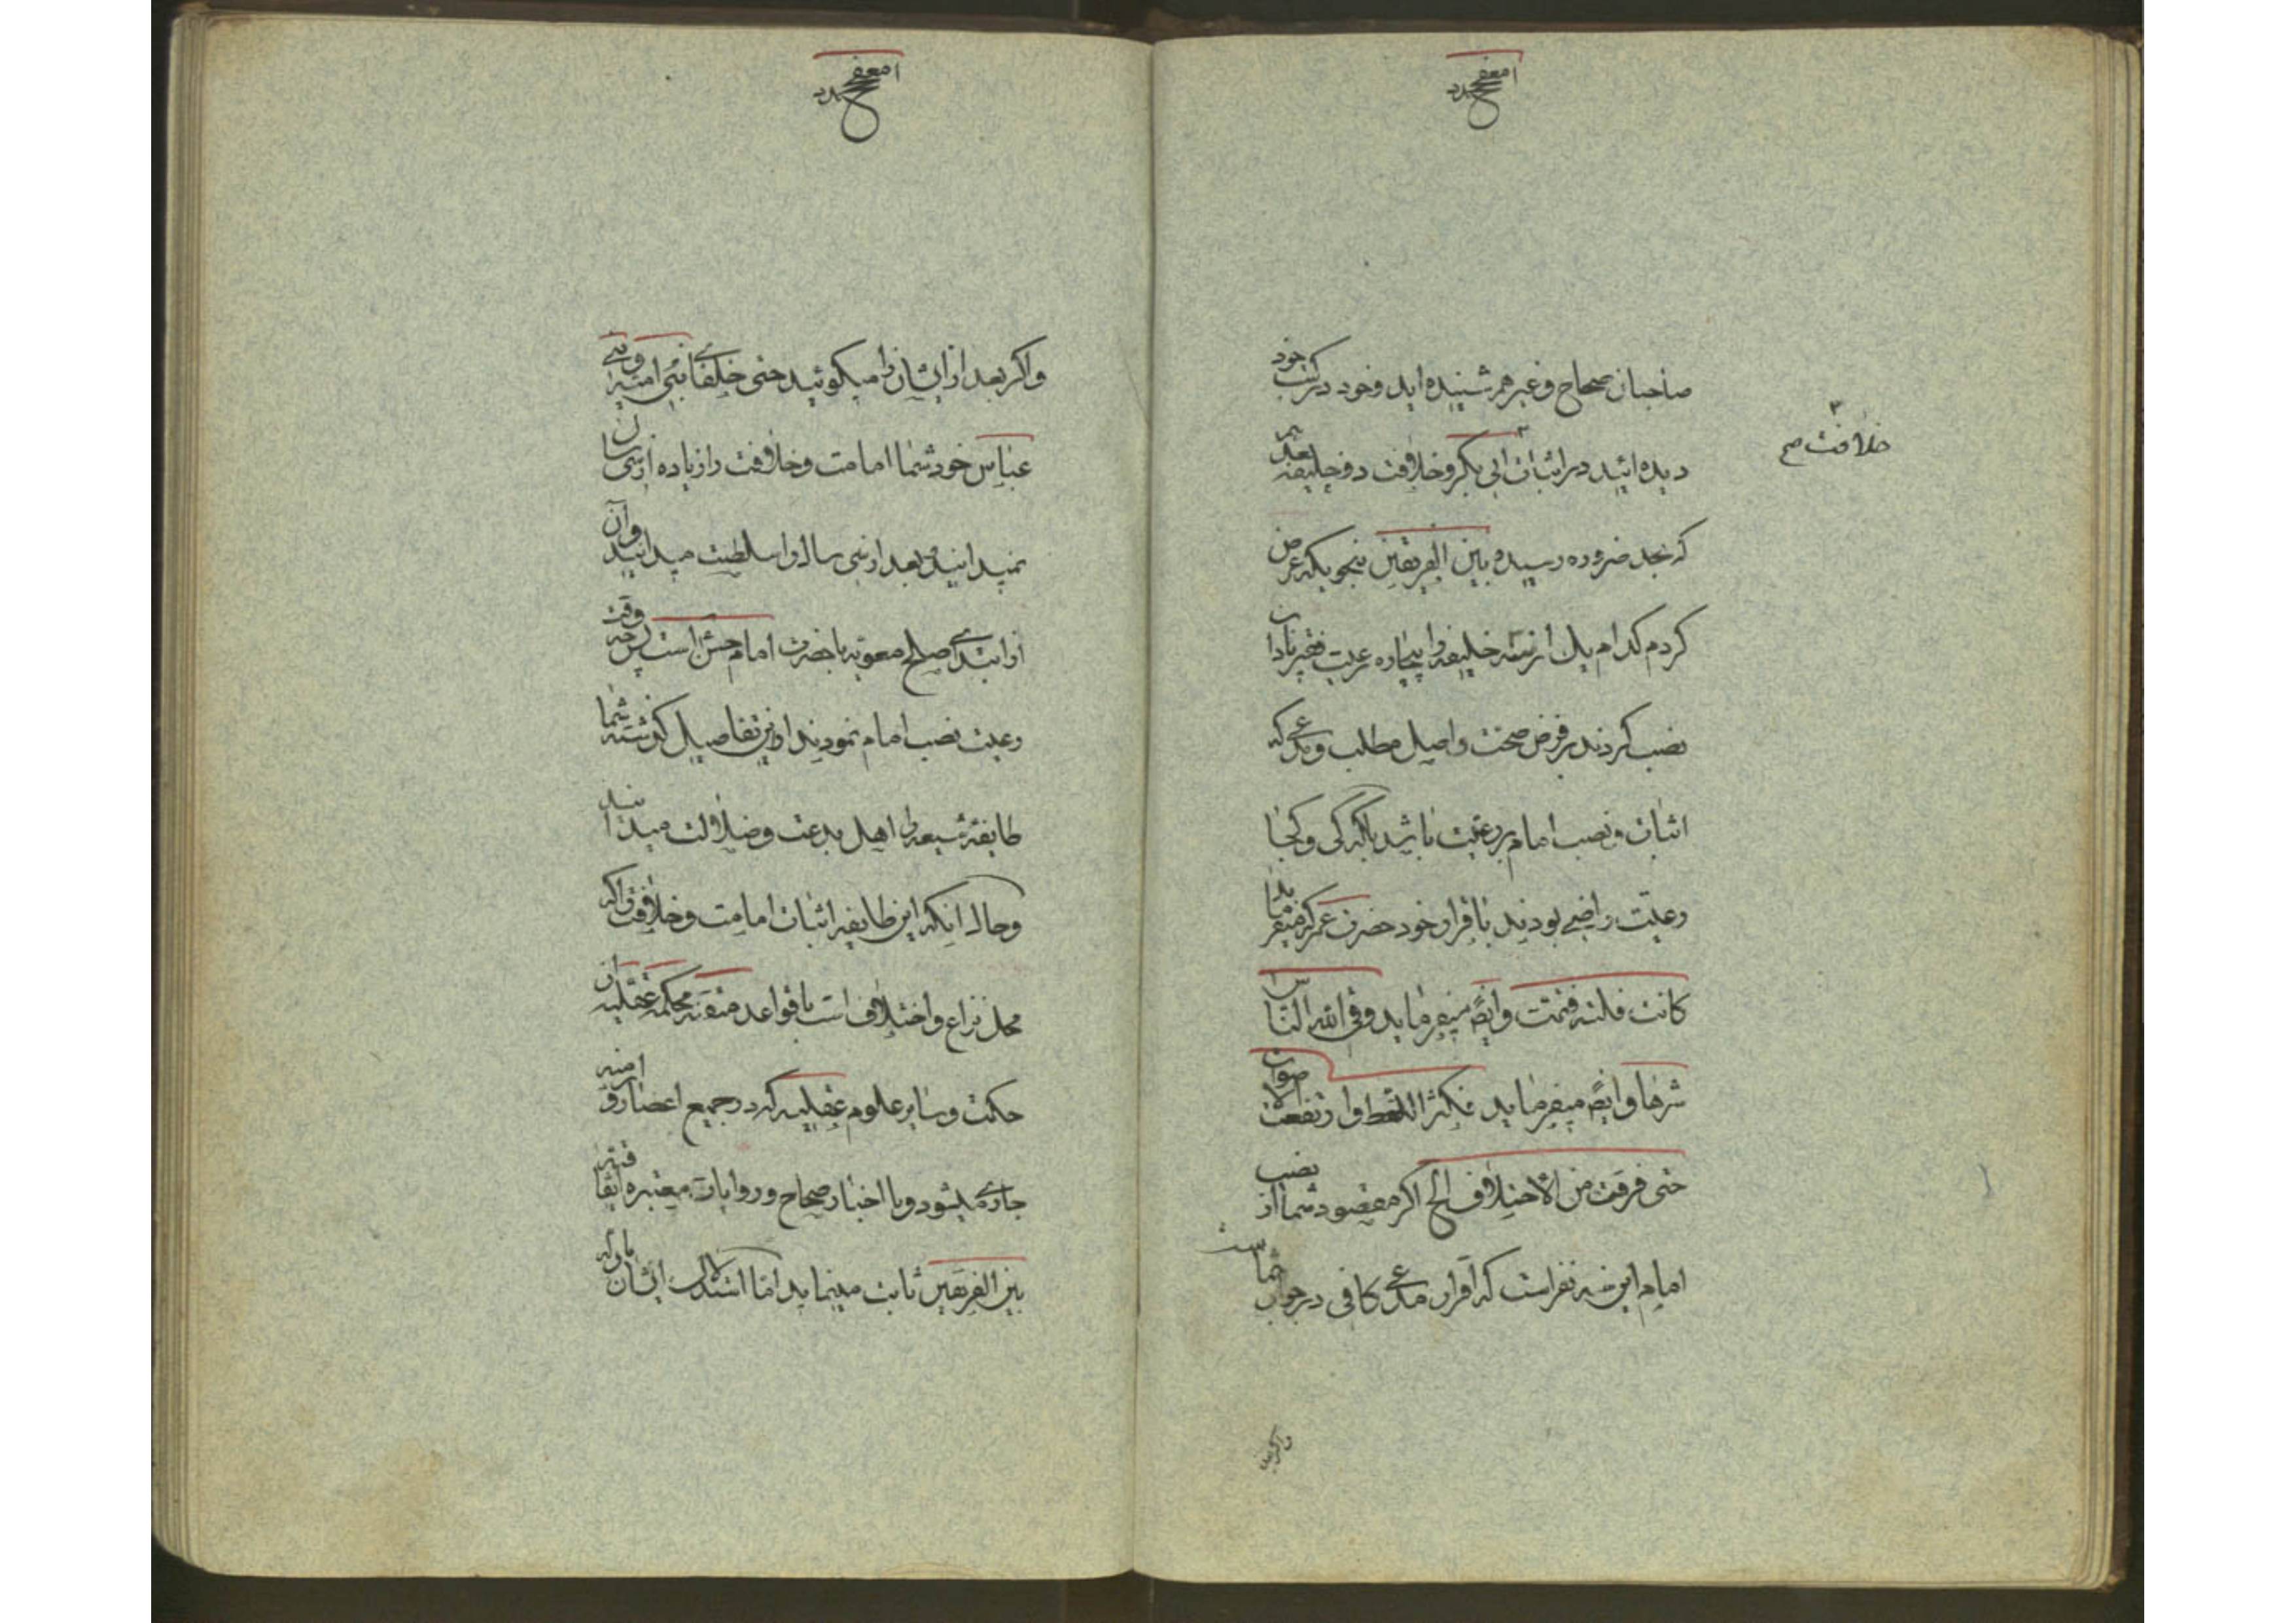 صاحبان صحاح و غیرهم شنیده اید و خود در کتب خود
دیده ائید در اثبات ابی بکر و خلافت دو خلیفه بعدیم
خلافت صح
که بحد ضروره رسیده بین الفریقین بنحویکه عرض
کردم کدام یک از سه خلیفه را بیچاره رعیت فقیر نادان
نصب کردند بر فرض صحت و اصل مطلب و مدعی که
اثبات و نصب امام بر رعیت باشد بلکه کی و کجا
رعیت راضی بودند باقرار خود حضرت عمر که میفرماید
کانت فلتة فتمت و ایضً میفرماید وقی الله الناس
شرها و ایضً میفرماید فکثر اللغط و ارتفعت الاصوات
حتی فرقت من الاختلاف الخ اکر مقصود شما از نصب
امام این سه نفر است که اقرار مدعی کافی در جواب شماست
واکر بعد
واکر بعد از ایشان را میکوئید حتی خلفای بنی امیه و بنی
عباس خود شما امامت و خلافت را زیاده از سی سال
نمیدانید و بعد از سی سال را سلطنت میدانید و آن
از ابتدای صلح معویه با حضرت امام حسن است پس چه وقت
رعیت نصب امام نمودند و از این تفاصیل کذشته شما
طایفه شیعه را اهل بدعت و ضلالت میدانند
و حال انکه این طایفه اثبات امامت و خلافت را که
محل نزاع و اختلاف است با قواعد متقنه محکمه عقلیه ان
حکمت و سایر علوم عقلیه که در جمیع اعصار و ازمنه
جاری میشود و با اخبار صحاح و روایات معتبره متفقه
بین الفریقین ثابت مینماید اما استدلال ایشان بادله